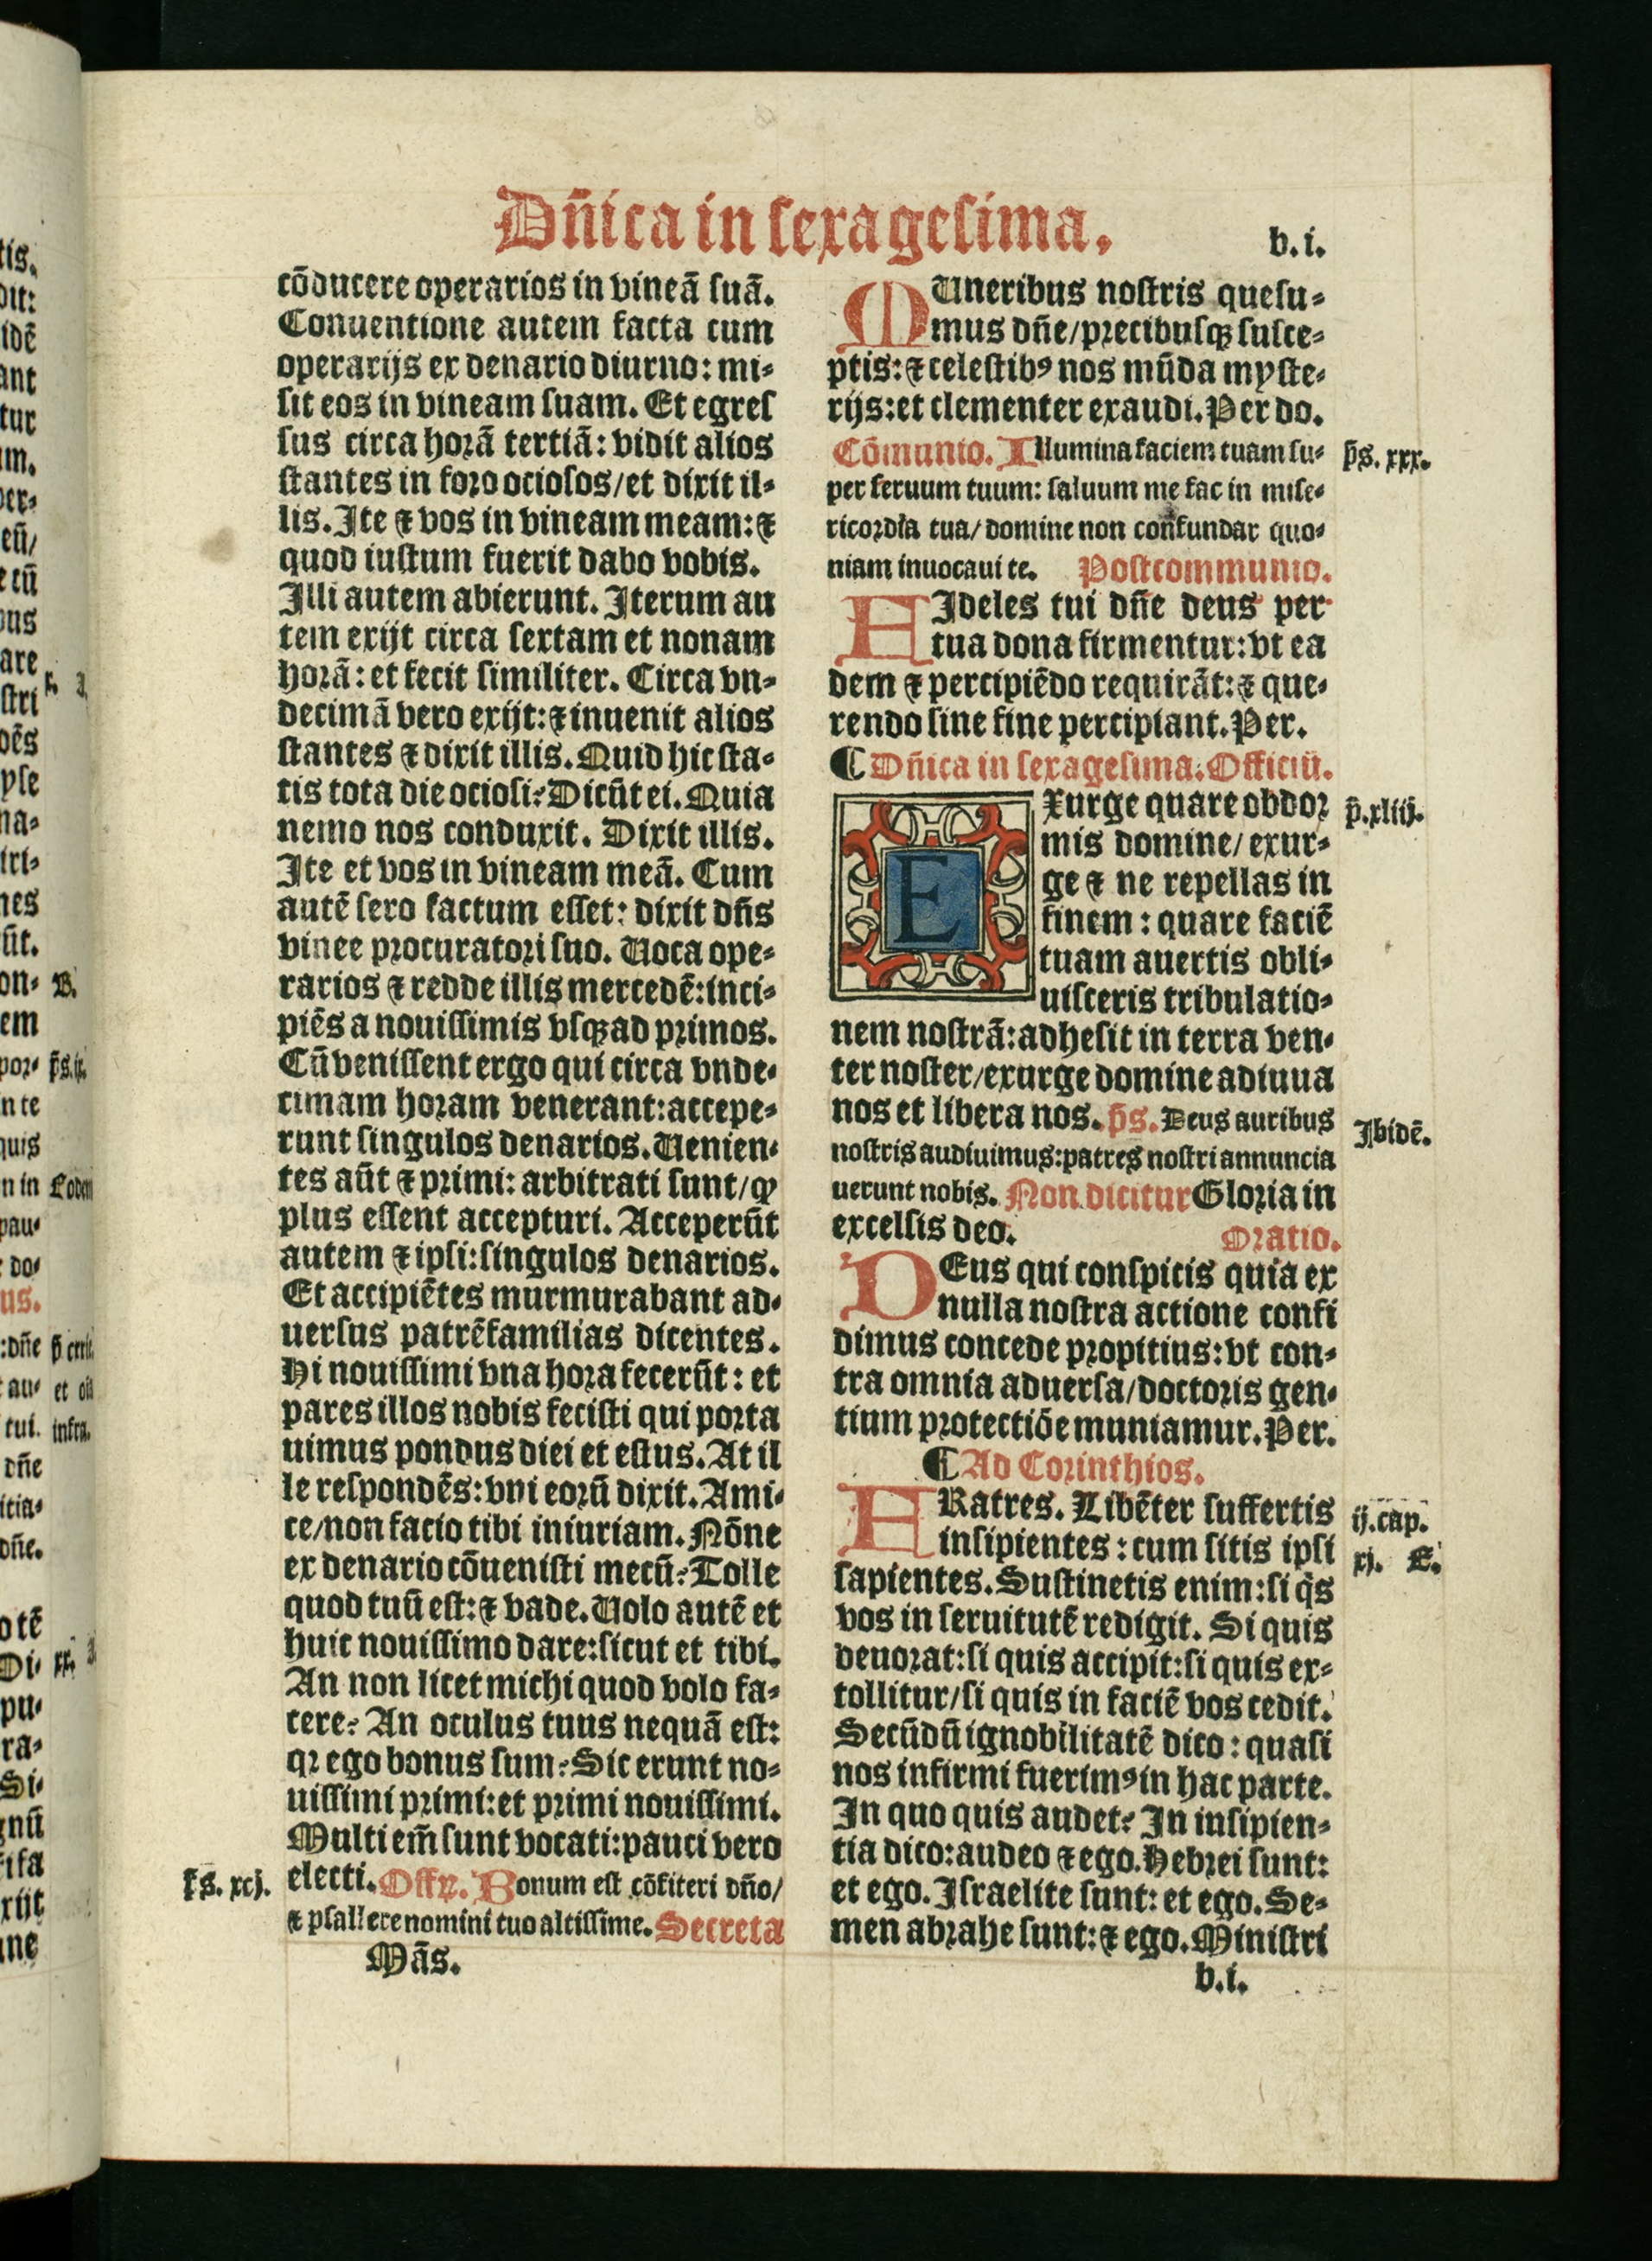 Dñica in sexagesima.
b.i.
cōducere operarios in vineā suā.
Conuentione autem facta cum
operarijs ex denario diurno: mi-
sit eos in vineam suam. Et egres
sus circa horā tertiā: vidit alios
stantes in foro ociosos/et dixit il-
lis. Ite ⁊ vos in vineam meam: ⁊
quod iustum fuerit dabo vobis.
Illi autem abierunt. Iterum au
tem exijt circa sextam et nonam
horā: et fecit similiter. Circa vn-
decimā vero exijt: ⁊ inuenit alios
stantes ⁊ dixit illis. Quid hic sta-
tis tota die ociosi? Dicūt ei. Quia
nemo nos conduxit. Dixit illis.
Ite et vos in vineam meā. Cum
autē sero factum esset: dixit dñs
vinee procuratori suo. Uoca ope-
rarios ⁊ redde illis mercedē: inci-
piēs a nouissimis vsqꝫ ad primos.
Cū venissent ergo qui circa vnde-
cimam horam venerant: accepe-
runt singulos denarios. Uenien-
tes aūt ⁊ primi: arbitrati sunt/ꝙ
plus essent accepturi. Acceperūt
autem ⁊ ipsi: singulos denarios.
Et accipiētes murmurabant ad-
uersus patrēfamilias dicentes.
Hi nouissimi vna hora fecerūt: et
pares illos nobis fecisti qui porta
uimus pondus diei et estus. At il
le respondēs: vni eorū dixit. Ami-
ce/non facio tibi iniuriam. Nōne
ex denario cōuenisti mecū? Tolle
quod tuū est: ⁊ vade. Uolo autē et
huic nouissimo dare: sicut et tibi.
An non licet michi quod volo fa-
cere? An oculus tuus nequā est:
qꝛ ego bonus sum? Sic erunt no-
uissimi primi: et primi nouissimi.
Multi em̄ sunt vocati: pauci vero
electi. Offꝝ. Bonum est cōfiteri dño/
p̄s. xcj.
⁊ psallere nomini tuo altissime. Secreta
Mūs.
MUneribus nostris quesu-
mus dñe/precibusqꝫ susce-
ptis: ⁊ celestibꝰ nos mūda myste-
rijs: et clementer exaudi. Per do.
Cōmunio. Illumina faciem tuam su-
p̄s. xxx.
per seruum tuum: saluum me fac in mise-
ricordia tua/ domine non confundar quo-
niam inuocaui te. Postcommunio.
FIdeles tui dñe deus per
tua dona firmentur: vt ea
dem ⁊ percipiēdo requirāt: ⁊ que-
rendo sine fine percipiant. Per.
¶ Dñica in sexagesima. Officiū.
EXurge quare obdor
p̄. xliij.
mis domine/ exur-
ge ⁊ ne repellas in
finem: quare faciē
tuam auertis obli-
uisceris tribulatio-
nem nostrā: adhesit in terra ven-
ter noster/exurge domine adiuua
nos et libera nos. p̄s. Deus auribus
Ibidē.
nostris audiuimus: patres nostri annuncia
uerunt nobis. Non dicitur Gloria in
excelsis deo. Oratio.
DEus qui conspicis quia ex
nulla nostra actione confi
dimus concede propitius: vt con-
tra omnia aduersa/doctoris gen-
tium protectiōe muniamur. Per.
¶ Ad Corinthios.
FRatres. Libēter suffertis
ij. cap.
insipientes: cum sitis ipsi
xj. E.
sapientes. Sustinetis enim: si q̇s
vos in seruitutē redigit. Si quis
deuorat: si quis accipit: si quis ex-
tollitur/si quis in faciē vos cedit.
Secūdū ignobilitatē dico: quasi
nos infirmi fuerimꝰ in hac parte.
In quo quis audet? In insipien-
tia dico: audeo ⁊ ego. Hebrei sunt:
et ego. Israelite sunt: et ego. Se-
men abrahe sunt: ⁊ ego. Ministri
b.i.